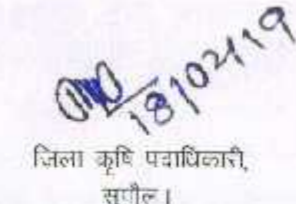 18/02/19
जिला कृषि पदाधिकारी,
सुपौल।